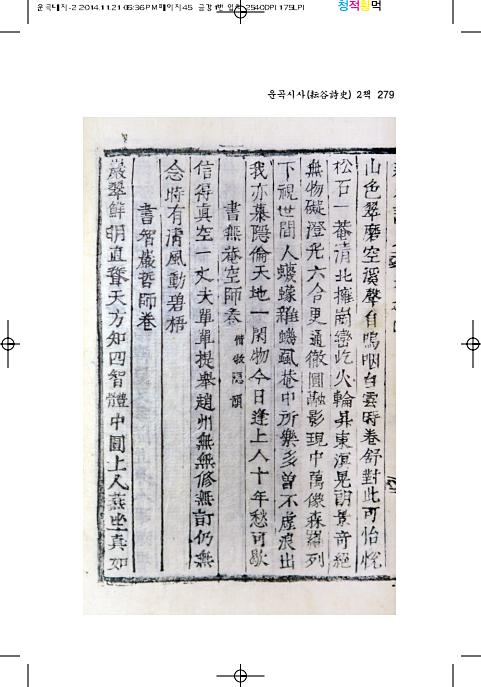 운곡대지-2 2014.11.21 05:36 PM 페이지45
2540DPI 175LPI
청적황먹
운곡시사(耘谷詩史) 2책 279
山色翠磨空溪聲自嗚咽白雲時卷舒對此可怡悅
松石一菴清北擁崗巒屹火輪昇東溟晃朗景奇絕
無物礙澄光六合更通徹圓融影現中萬像森羅列
下視世間人蠛蠓雜蟣虱菴中所樂多曾不虛浪出
我亦慕隱倫天地一閑物今日逢上人十年愁可歇
書無菴空師卷
信得真空一丈夫單單提舉趙州無無修無訂仍無
念時有清風動碧梧
書智巖哲師卷
巖翠鮮明直聳天方知四智體中圓上人燕坐真如